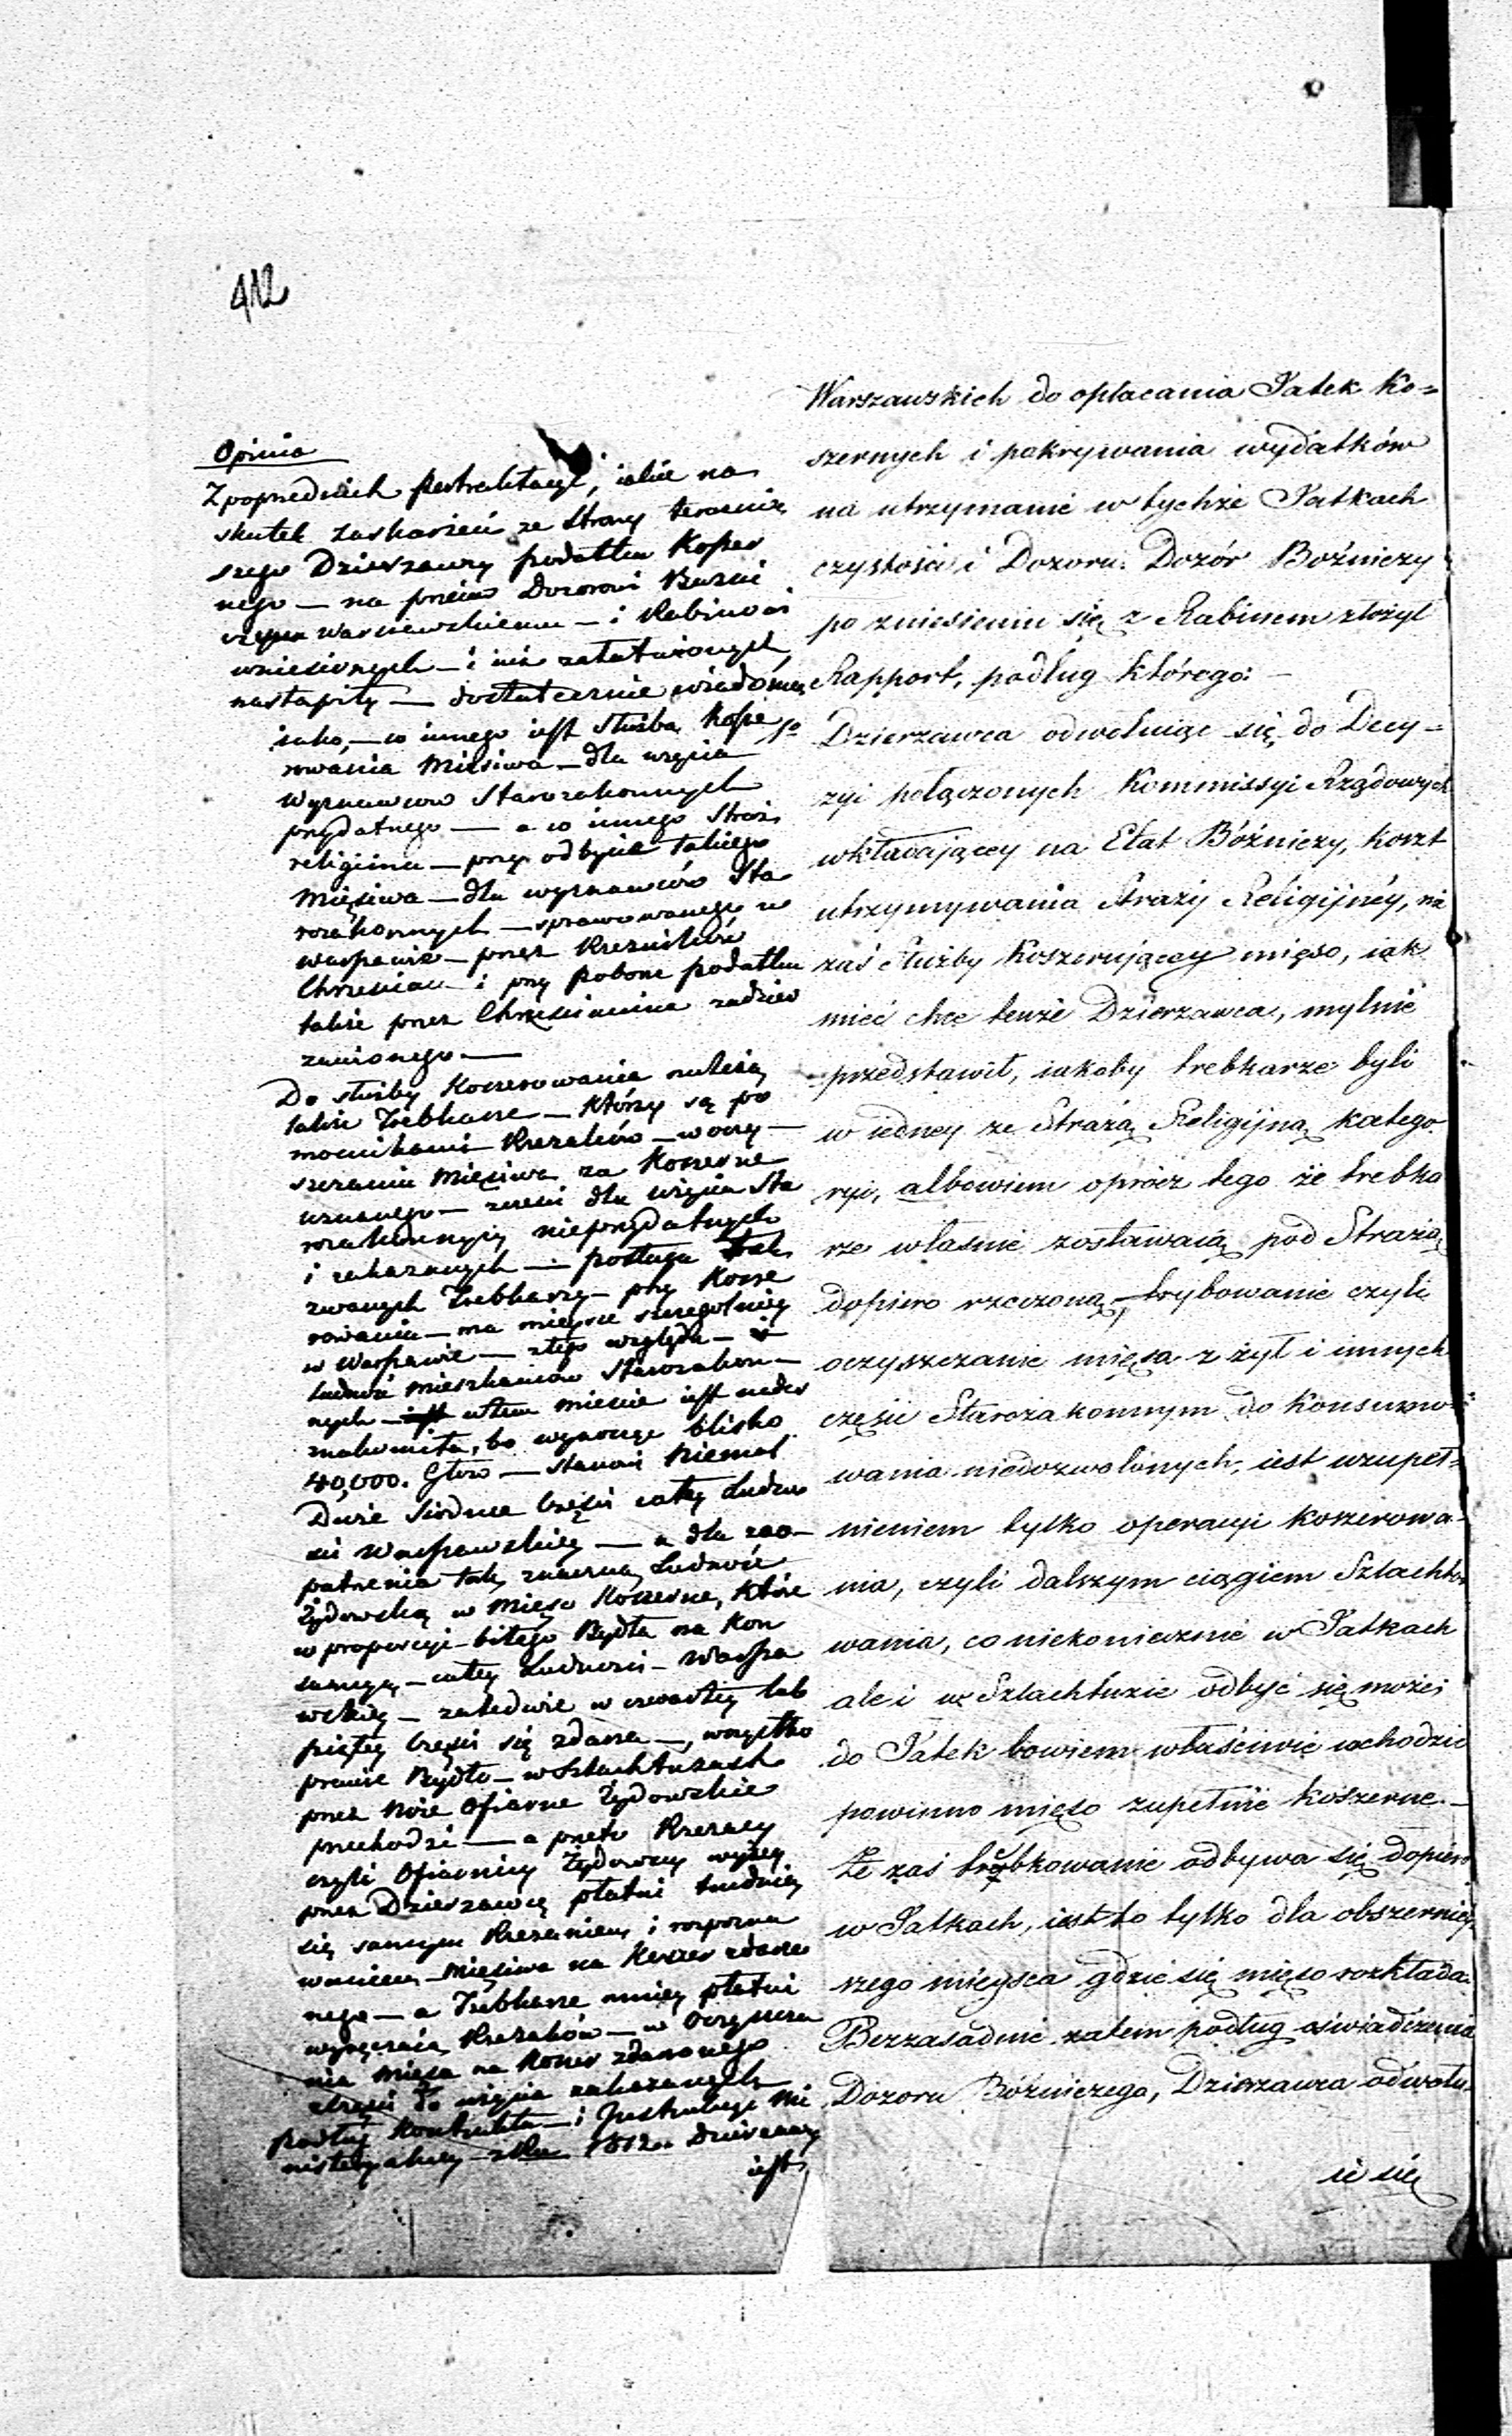 412
Opinia
Z poprzednich pertraktacyi, iakie na
skutek zaskarzeń ze strony teraźniey
szego Dzierzawcy podatku Koszer
nego — na przeciw Dozorowi Bożni
czemu Warszawskiemu — i Rabinowi
wniesionych — i iuż załatwionych
nastąpiły — dostatecznie wiadomą
iako, — co innego iest służba kosze
rowania Mięsiwa — dla użycia
Wyznawców Starozakonnych
przydatnego — a co innego Straż
religijna — przy odbycie takiego
Mięsiwa — dla wyznawców Sta
rozakonnych — sprawowanego w
Warszawie — przez Rzeźników
Chrześcian — i przy poborze podatku
także przez Chrześcianina zadzier
zawionego. —
Do służby Koszerowania należą
także Trebkarze — którzy są po
mocnikami Rzezaków — w oczy —
szczaniu Mięsiwa za Koszerne
uznanego — z części dla użycia Sta
rozakonnych nieprzydatnych
i zakazanych — posługa tak
zwanych Trebkarzy — przy Kosze
rowaniu — ma mieysce szczególniey
w Warszawie — z tego względu — iż
Ludność mieszkańców Starozakon —
nych — w tem mieście iest nader
znakomita, bo wynosząc blisko
40,000. Głów — stanowi niemal
Dwie siódme części całey Ludno
ści Warszawskiey — a dla zao —
patrzenia tak znaczną Ludność
Żydowską w Mięso Koszerne, które
w proporcyi — bitego Bydła na Kon
sumcyą — całey Ludności — Warsza
wskiey — zaledwie w czwartey lub
piątey części się zdarza —, wszystko
prawie Bydło — w Szlachtuzach
przez noże ofiarne Żydowskie
przechodzi — a przeto Rzezacy
czyli Ofiarnicy Żydowscy wyżey
przez Dzierzawcę płatni trudnią
się samym Rzezaniem i rozpozna
waniem — Mięsiwa na Koszer zdarze
nego — a Trebkarze mniey płatni
wyręczaią Rzezaków — w oczyszcza
nia Mięsa na Koszer zdarzonego
z części do użycia zakazanych
podług Kontraktu — i Instrukcyi Mi
nisteryalney — z Ru 1812. Dzierzawcy
iest
Warszawskich do opłacania Jatek Ko=
szernych i pokrywania wydatków
na utrzymanie w tychże Jatkach
czystości i Dozoru. Dozór Bóżniczy
po zniesieniu się z Rabinem złożył
Rapport, podług którego: —
1o Dzierzawca odwołuiąc się do Decy=
zyi połączonych Kommissyi Rządowych
wkładającey na Etat Bóżniczy, koszt
utrzymywania Straży Religijnéy, nie
zaś Służby Koszerującey mięso, iak
mieć chce tenże Dzierzawca, mylnie
przedstawił, iakoby trebkarze byli
w iedney ze Strażą Religijną katego
ryi, albowiem oprócz tego że trebka
rze właśnie zostawaią pod Strażą
dopiero rzeczoną, — trybowanie czyli
oczyszczanie mięsa z żył i innych
części Starozakonnym do konsumo=
wania niedozwolonych, iest uzupeł=
nieniem tylko operacyi koszerowa=
nia, czyli dalszym ciągiem Szlachto=
wania, co niekoniecznie w Jatkach
ale i w Szlachtuzie odbyć się może;
do Jatek bowiem właściwie wchodzić
powinno mięso zupełnie koszerne. —
Że zaś trebkowanie odbywa się dopiero
w Jatkach, iest to tylko dla obszerniey
szego mieysca gdzie się mięso rozkłada.
Bezzasadnie zatem podług oświadczenia
Dozoru Bóżniczego, Dzierzawca odwołu=
ie się